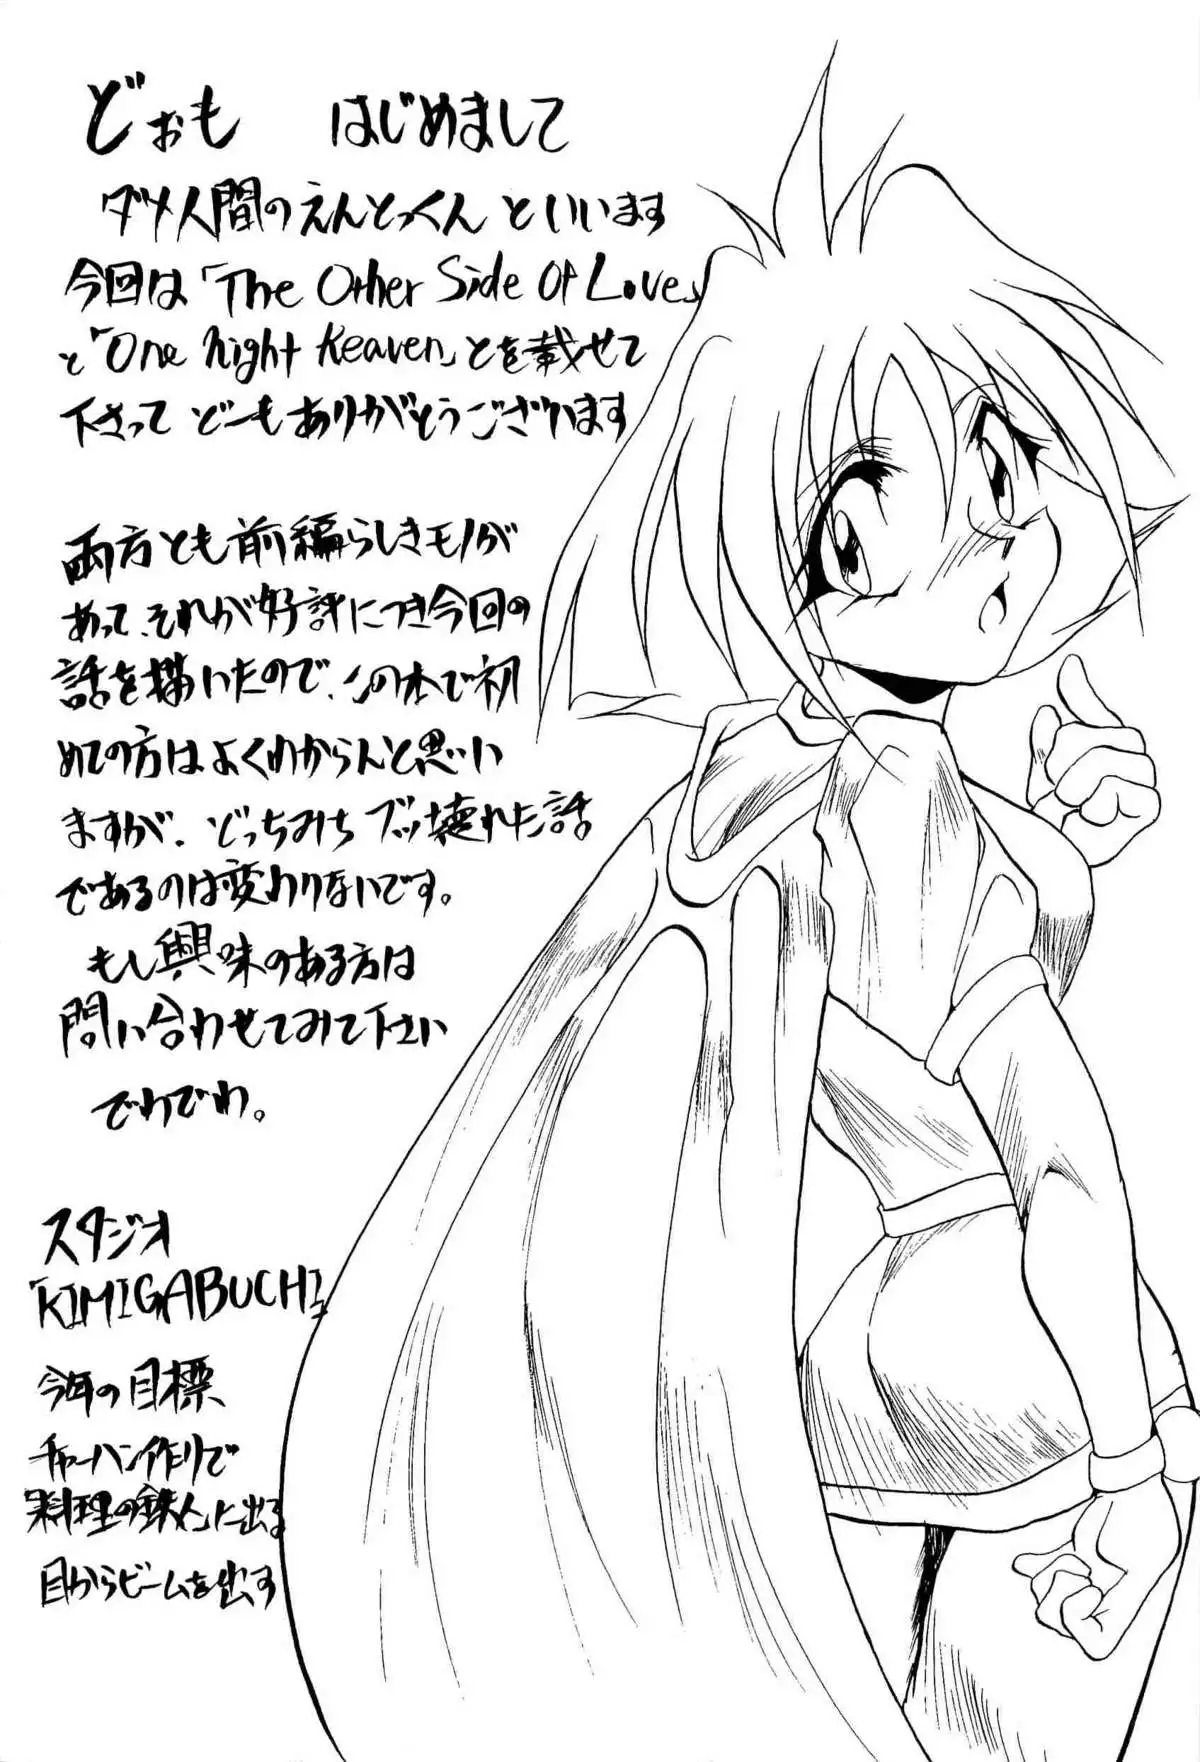 どぉも はじめまして
ダメ人間のえんとっくん といいます
今回は「The Other Side Of Love」
と「One Night Heaven」とを載せて
下さって どーもありがとうございます
両方とも前編らしきモノが
あって、それが好評につき今回の
話を描いたので、この本で初
めての方はよくわからんと思い
ますが、どっちみちブッ壊れた話
であるのは変わりないです。
もし興味のある方は
問い合わせてみて下さい
でわでわ。
スタジオ
「KIMIGABUCHI」
今年の目標
チャーハン作りで
「料理の鉄人」に出る
目からビームを出す